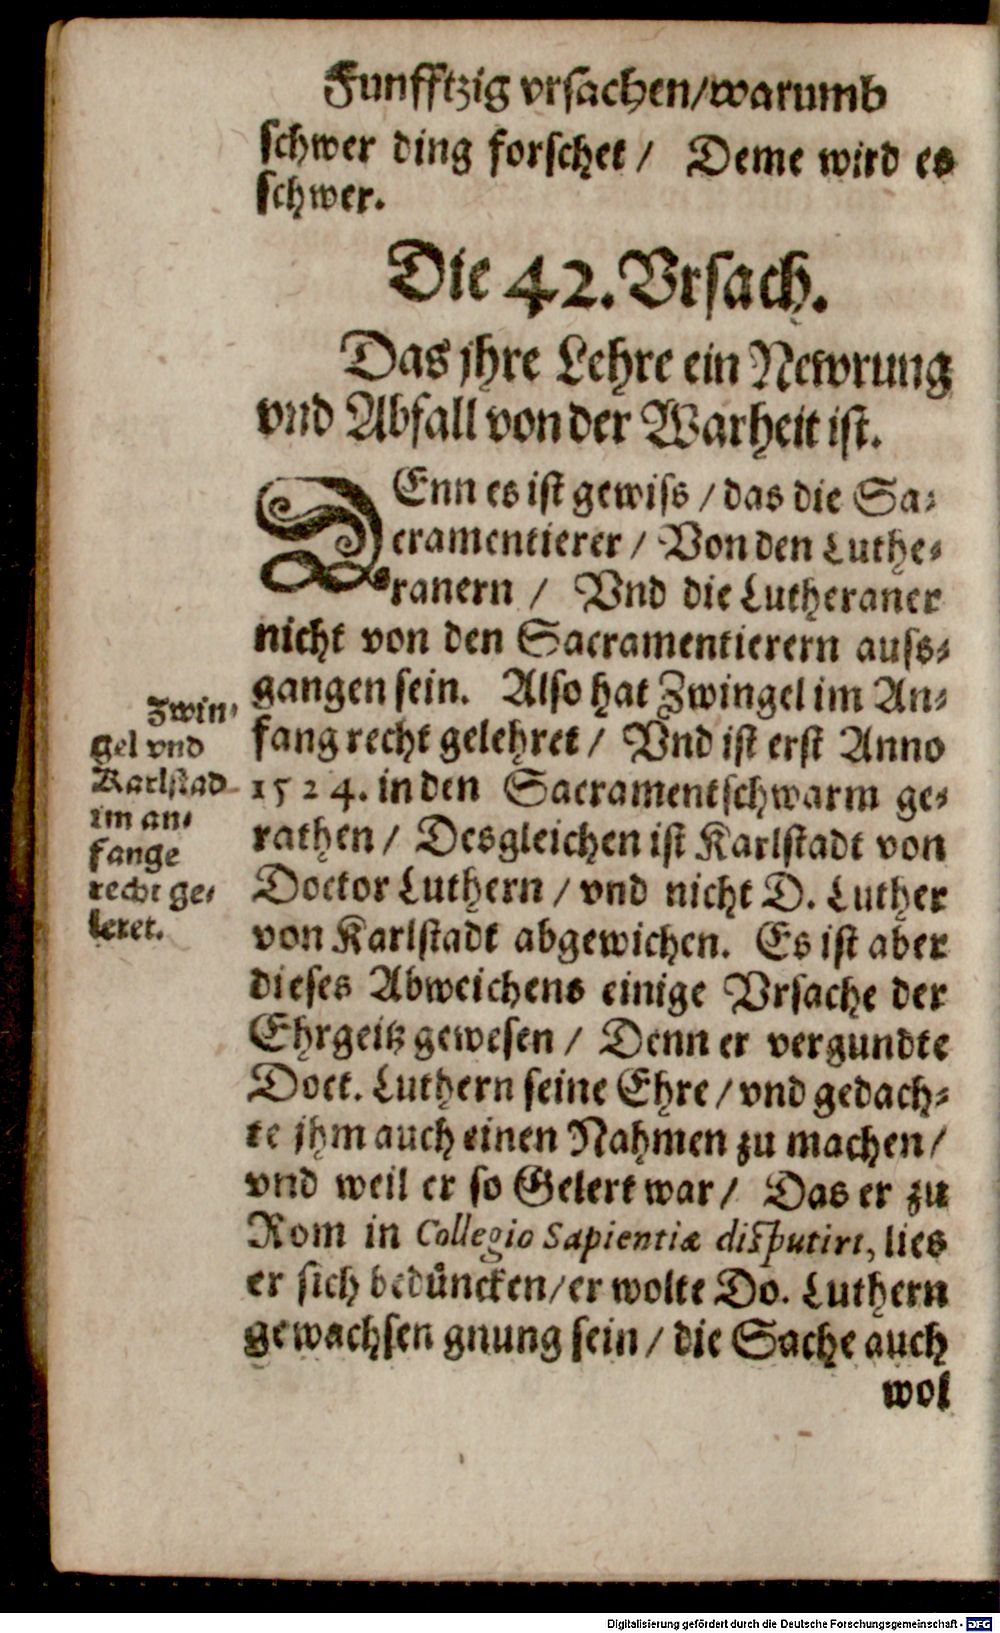 Funfftzig vrsachen/warumb
schwer ding forschet / Deme wird es
schwer.
Die 42. Vrsach.
Das jhre Lehre ein Newrung
vnd Abfall von der Warheit ist.
DEnn es ist gewiss / das die Sa-
cramentierer / Von den Luthe-
ranern / Vnd die Lutheraner
nicht von den Sacramentierern auss-
gangen sein. Also hat Zwingel im An-
fang recht gelehret / Vnd ist erst Anno
1524. in den Sacramentschwarm ge-
rathen / Desgleichen ist Karlstadt von
Doctor Luthern / vnd nicht D. Luther
von Karlstadt abgewichen. Es ist aber
dieses Abweichens einige Vrsache der
Ehrgeitz gewesen / Denn er vergundte
Doct. Luthern seine Ehre / vnd gedach-
te jhm auch einen Nahmen zu machen /
vnd weil er so Gelert war / Das er zu
Rom in Collegio Sapientiæ disputirt, lies
er sich bedůncken/er wolte Do. Luthern
gewachsen gnung sein / die Sache auch
wol
Zwin-
gel vnd
Karlstad
im an-
fange
recht ge-
leret.
Digitalisierung gefördert durch die Deutsche Forschungsgemeinschaft - DFG